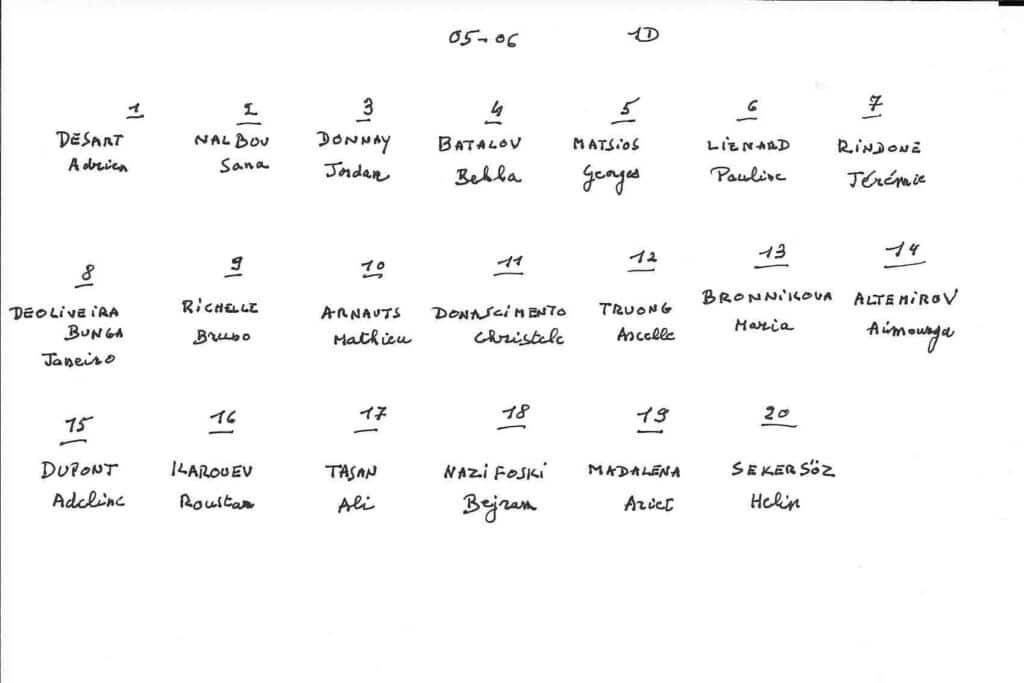 05-06 1D
1 2 3 4 5 6 7
DESART NALBOU DONNAY BATALOV MATSIOS LIENARD RINDONE
Adrien Sana Jordan Bekka Georges Pauline Jérémie
8 9 10 11 12 13 14
DEOLIVEIRA RICHELLE ARNAUTS DONASCIMENTO TRUONG BRONNIKOVA ALTEMIROV
BUNGA Bruno Mathieu Christele Ascelle Maria
Janeiro
15 16 17 18 19 20
DUPONT TASAN NAZIFOSKI MADALENA SEKERSÖZ
Adeline Roustan Ali Bejram Helin